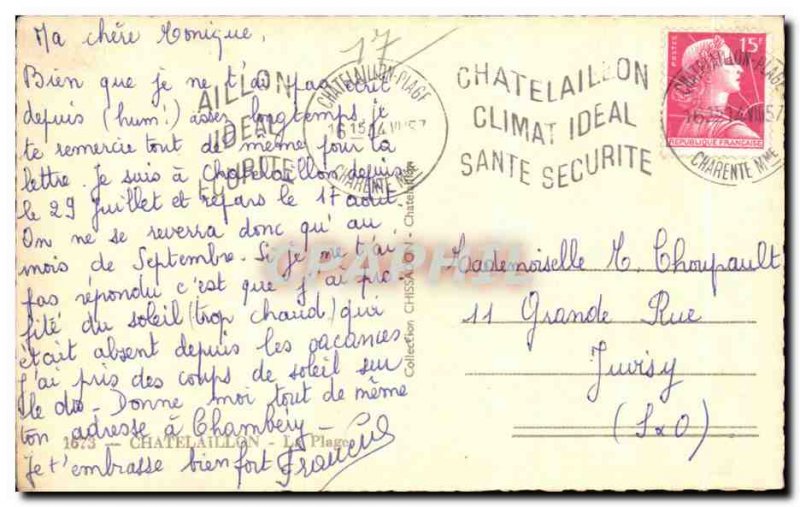 Ma chère Monique,
Bien que je ne t'ai pas écrit
depuis (hum!) assez longtemps je
te remercie tout de même pour la
lettre. Je suis à Chatelaillon depuis
le 29 Juillet et repars le 17 août.
On ne se reverra donc qu'au
mois de Septembre. Si je ne t'ai
pas répondu c'est que j'ai pro-
fité du soleil (trop chaud) qui
était absent depuis les vacances
J'ai pris des coups de soleil sur
le dos - Donne moi tout de même
ton adresse à Chambéry -
1673 - CHATELAILLON - La Plage
Je t'embrasse bien fort
17
AILLON
IDEAL
ECURITE
CHATELAILLON-PLAGE
16 15 14 VIII 57
CHARENTE Mme
CHATELAILLON
CLIMAT IDEAL
SANTE SECURITE
POSTES
15F
REPUBLIQUE FRANÇAISE
CHATELAILLON-PLAGE
16 15 14 VIII 57
CHARENTE Mme
Collection CHISSADON - Chatelaillon
CPAPHIL
Mademoiselle M. Choupault
11 Grande Rue
Juvisy
(S&O)